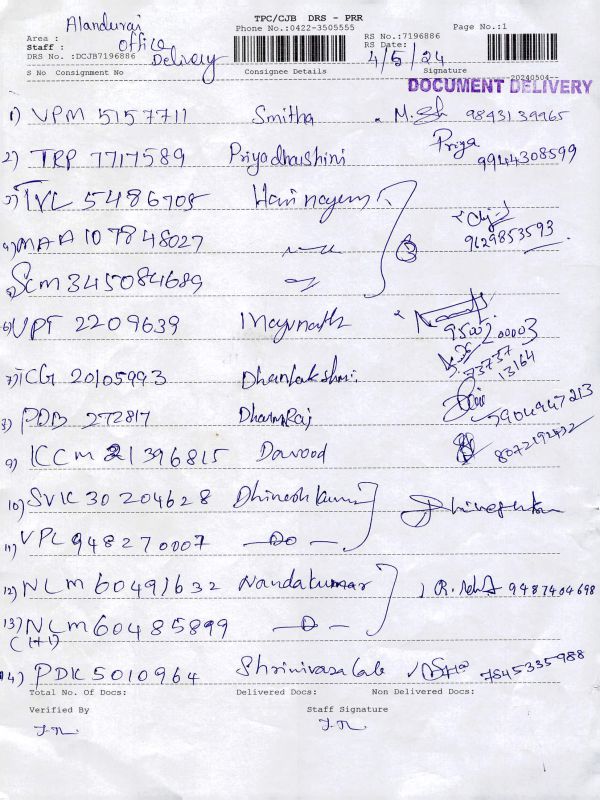 TPC/CJB DRS - PRR
Alandurai
Phone No.:0422-3505555
Page No.:1
Area :
Staff :
office
RS No.:7196886
RS Date:
DRS No. :DCJB7196886
Delivery
4/5/24
S No Consignment No
Consignee Details
Signature
20240504
DOCUMENT DELIVERY
1) VPM 5157711 Smitha 9843139965
2) TRP 7717589 Priyadharshini Priya 9944308599
3) TVL 5486705
4) MAA 107848027 9629853593
5) SCM 345084689
6) VPT 2209639 95002 00003
7) ICG 20105993 Dhanlakshmi 73737 13164
8) PDB 272817 DharmRaj 5904947213
9) ICCM 21396815 Dawood 8072192432
10) SVK 30204628 Dhinesh kumar
11) VPL 948270007 — Do —
12) NLM 60491632 Nandakumar 9487404698
13) NLM 60485899
(1+1)
14) PDK 5010964 7845335988
Total No. Of Docs: Delivered Docs: Non Delivered Docs:
Verified By Staff Signature